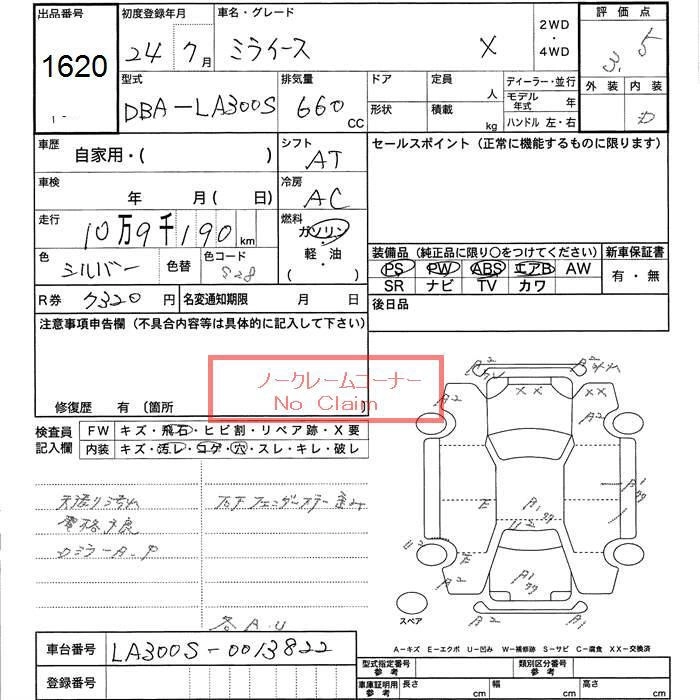 出品番号 初度登録年月 車名・グレード 2WD・4WD 評価点
1620 24 7月 ミライース X 3.5
型式 排気量 ドア 定員 人 ディーラー・並行 外装 内装
DBA-LA300S 660 CC 形状 積載 kg モデル年式 年 D
ハンドル 左・右
車歴 自家用・( ) シフト AT セールスポイント (正常に機能するものに限ります)
車検 年 月( 日) 冷房 AC
走行 10万9千190km 燃料 ガソリン・軽・油 ( )
色 シルバー 色替 色コード S28
装備品 (純正品に限り○をつけてください) 新車保証書
PS PW ABS エアB AW 有・無
SR ナビ TV カワ
R券 7320円 名変通知期限 月 日 後日品
注意事項申告欄 (不具合内容等は具体的に記入して下さい)
ノークレームコーナー
No Claim
修復歴 有 〔箇所 〕
検査員記入欄 FW キズ・飛石・ヒビ割・リペア跡・X要
内装 キズ・汚レ・コゲ・穴・スレ・キレ・破レ
A2 A2
XX XX
A2 A2
E A1 A1
E2 E
A2 A1 A2
A2 A1
スペア
各A.U
A-キズ E-エクボ U-凹み W-補修跡 S-サビ C-腐食 XX-交換済
車台番号 LA300S-0013822
型式指定番号 参考 類別区分番号 参考
登録番号 車庫証明用 参考 長さ cm 幅 cm 高さ cm